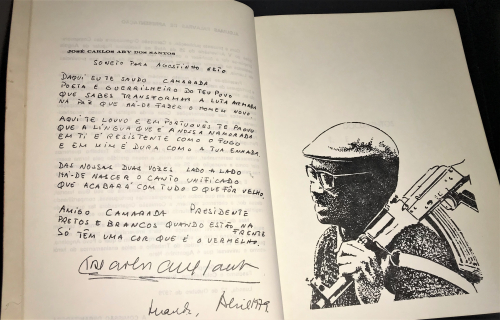 JOSÉ CARLOS ARY DOS SANTOS
SONETO PARA AGOSTINHO NETO
DAQUI EU TE SAÚDO CAMARADA
POETA E GUERRILHEIRO DO TEU POVO
QUE SABES TRANSFORMAR A LUTA ARMADA
NA PAZ QUE HÁ-DE FAZER O HOMEM NOVO
AQUI TE LOUVO E EM PORTUGUÊS TE PROVO
QUE A LÍNGUA QUE É A NOSSA NAMORADA
EM TI É RESISTENTE COMO O FOGO
E EM MIM É DURA COMO A TUA ENXADA.
DAS NOSSAS DUAS VOZES LADO A LADO
HÁ-DE NASCER O CANTO UNIFICADO
QUE ACABARÁ COM TUDO O QUE FÔR VELHO.
AMIGO CAMARADA PRESIDENTE
PRETOS E BRANCOS QUANDO ESTÃO NA FRENTE
SÓ TÊM UMA COR QUE É O VERMELHO.
Luanda, Abril 1979